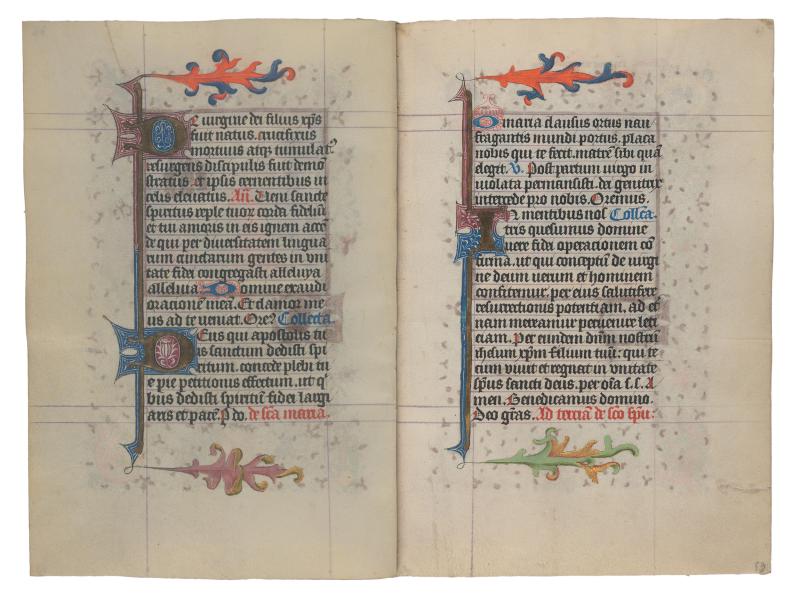 De uirgine dei filius xp̄s
fuit natus. crucifixus
mortuus atqꝫ tumulatꝰ
resurgens discipulis fuit demō
stratus. et ipsis cernentibus in
celis eleuatus. Añ. Ueni sancte
spiritus reple tuoꝝ corda fideliū
et tui amoris in eis ignem accē
de qui per diuersitatem lingua
rum cunctarum gentes in vni
tate fidei congregasti alleluya
alleluia. Domine exaudi
orationē meā. Et clamor me
us ad te ueniat. Ore? Collecta.
Deus qui apostolis tu
is sanctum dedisti spi
ritum. concede plebi tu
e pie petitionis effectum. ut q
bus dedisti spiritū fidei largi
aris et pacē. P do. de sc̄a maria.
O maria clausus ortus nau
fragantis mundi portus. placa
nobis qui te fecit. matrē sibi quā
elegit. V. Post partum uirgo in
uiolata permansisti. dei genitrix
intercede pro nobis. Oremus.
In mentibus nos Collecta.
tris quesumus domine
uere fidei operacionem cō
firma. ut qui conceptū de uirgi
ne deum uerum et hominem
confitemur. per eius salutifere
resurrectionis potentiam. ad et
nam mereamur peruenire leti
ciam. Per eundem dn̄m nostrū
ihesum xp̄m filium tuū: qui te
cum uiuit et regnat in vnitate
sp̄us sancti deus. per oīa s.s. A
men. Benedicamus domino.
Deo gr̄as. Ad terciā de sc̄o sp̄u: